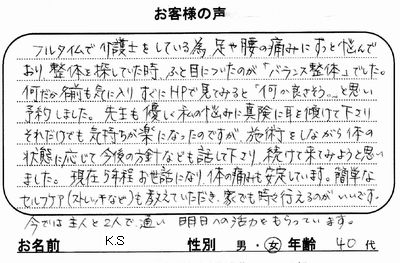 お客様の声
フルタイムで介護士をしている為 足や腰の痛みにずっと悩んで
おり 整体を探していた時、ふと目についたのが「バランス整体」でした。
何だか名前も気に入り すぐにHPで見てみると "何か良さそう。"と思い
予約しました。先生も優しく 私の悩みに真険に耳を傾けて下さり
それだけでも気持ちが楽になったのですが、施術をしながら体の
状態に応じて今後の方針なども話して下さり、続けて来てみようと思い
ました。現在5年程お世話になり体の痛みも安定しています。簡単な
セルフケア(ストレッチなど)も教えていただき、家でも時々行えるのがいいです。
今では主人と2人で通い 明日への活力をもらっています。
お名前 K.S 性別 男・女 年齢 40代